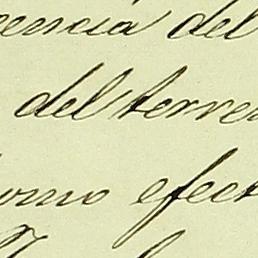 encia del
del terre
omo efect